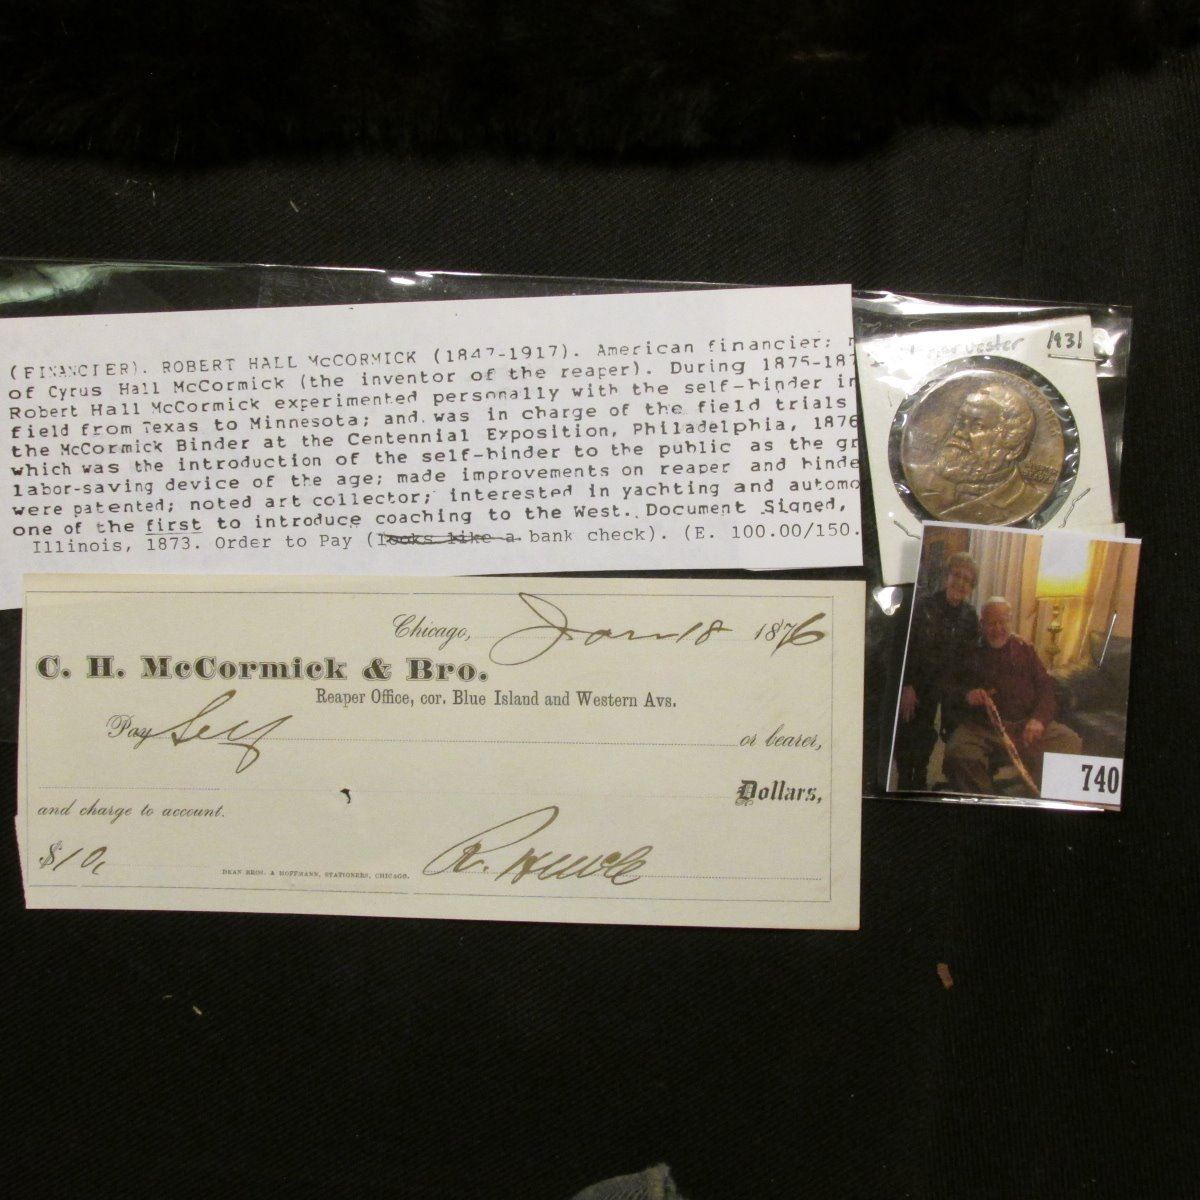 (FINANCIER). ROBERT HALL McCORMICK (1847-1917). American financier;
of Cyrus Hall McCormick (the inventor of the reaper). During 1875-187
Robert Hall McCormick experimented personally with the self-binder in
field from Texas to Minnesota; and was in charge of the field trials
the McCormick Binder at the Centennial Exposition, Philadelphia, 1876
which was the introduction of the self-binder to the public as the gr
labor-saving device of the age; made improvements on reaper and binde
were patented; noted art collector; interested in yachting and automo
one of the first to introduce coaching to the West. Document Signed,
Illinois, 1873. Order to Pay (looks like a bank check). (E. 100.00/150.
Harvester 1931
Chicago, Jan 18 1876
C. H. McCormick & Bro.
Reaper Office, cor. Blue Island and Western Avs.
Pay Self or bearer,
Dollars,
and charge to account.
$10,
DEAN BROS. & HOFFMANN, STATIONERS, CHICAGO.
740